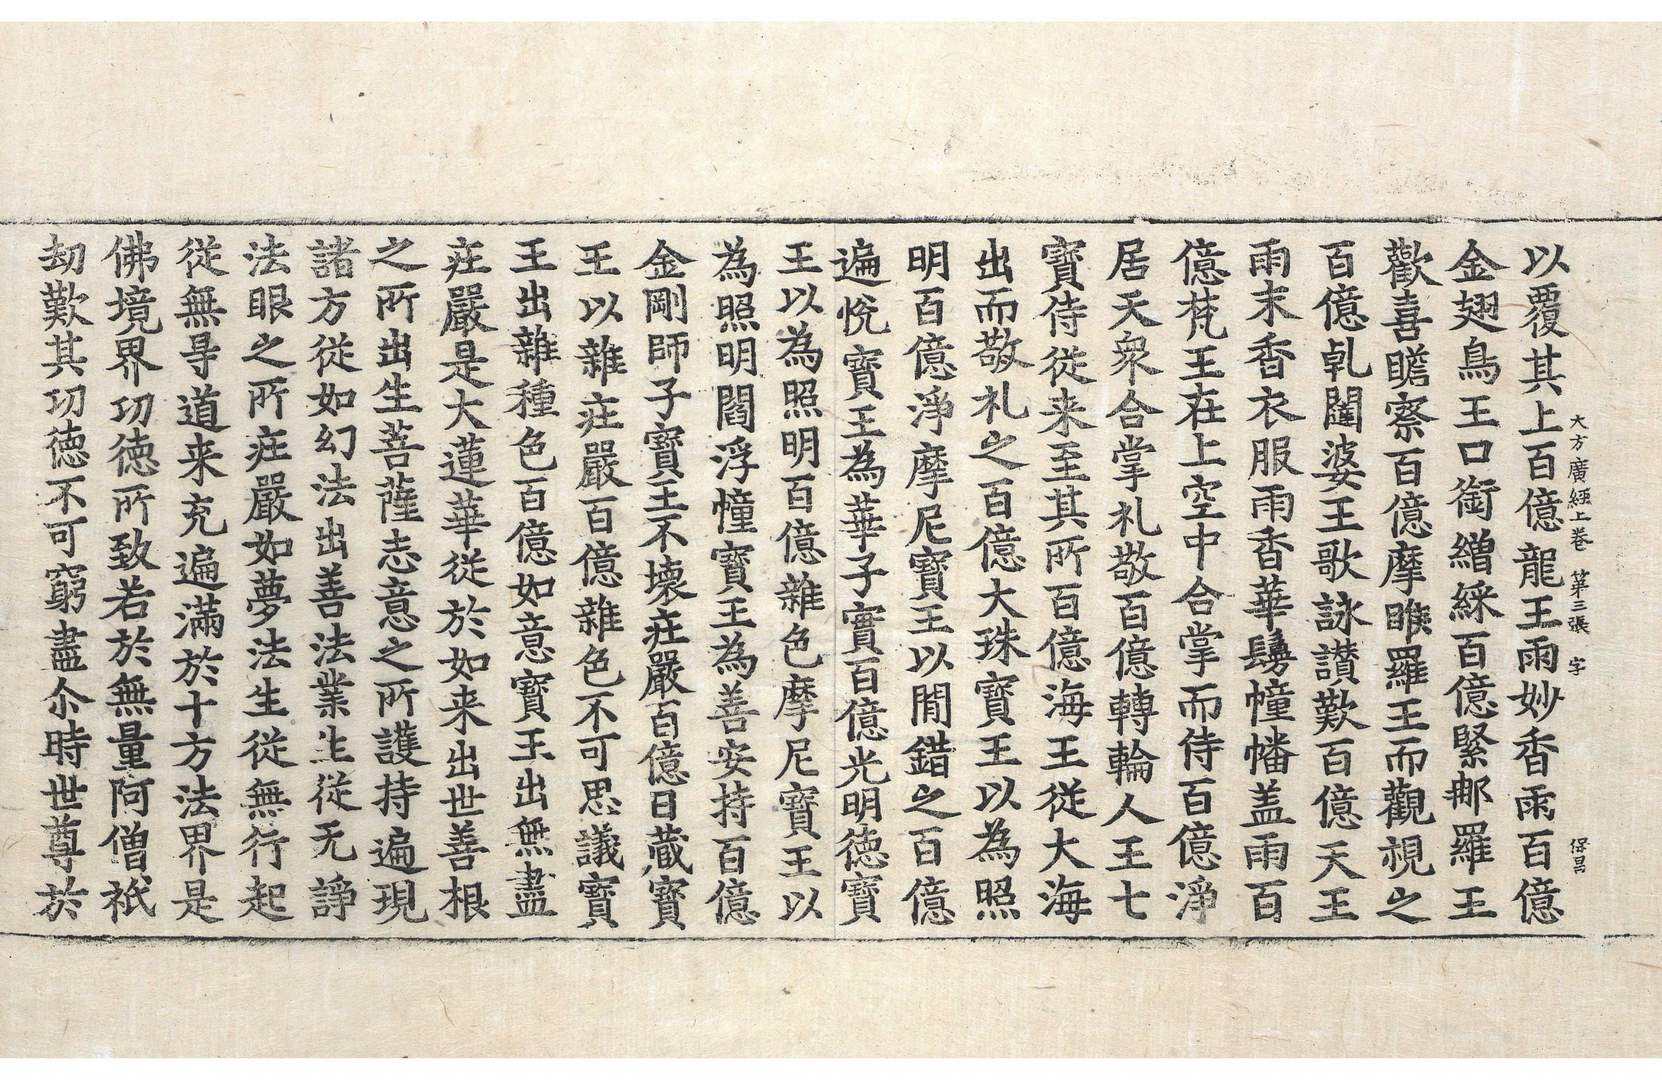 大方廣經上卷 第三張 字 保昌
以覆其上百億龍王雨妙香雨百億
金翅鳥王口銜繒綵百億緊那羅王
歡喜瞻察百億摩睺羅王而觀視之
百億乹闥婆王歌詠讃歎百億天王
雨末香衣服雨香華鬘幢幡盖雨百
億梵王在上空中合掌而侍百億淨
居天衆合掌礼敬百億轉輪人王七
寶侍従来至其所百億海王従大海
出而敬礼之百億大珠寶王以為照
明百億淨摩尼寶王以間錯之百億
遍悅寶王為華子實百億光明徳寶
王以為照明百億雜色摩尼寶王以
為照明閻浮幢寶王為善安持百億
金剛師子寶王不壞莊嚴百億日蔵寶
王以雜莊嚴百億雜色不可思議寶
王出雜種色百億如意寶王出無盡
莊嚴是大蓮華従於如来出世善根
之所出生菩薩志意之所護持遍現
諸方従如幻法出善法業生従无諍
法眼之所莊嚴如夢法生従無行起
従無㝵道来充遍滿於十方法界是
佛境界功徳所致若於無量阿僧祇
劫歎其功徳不可窮盡尒時世尊於